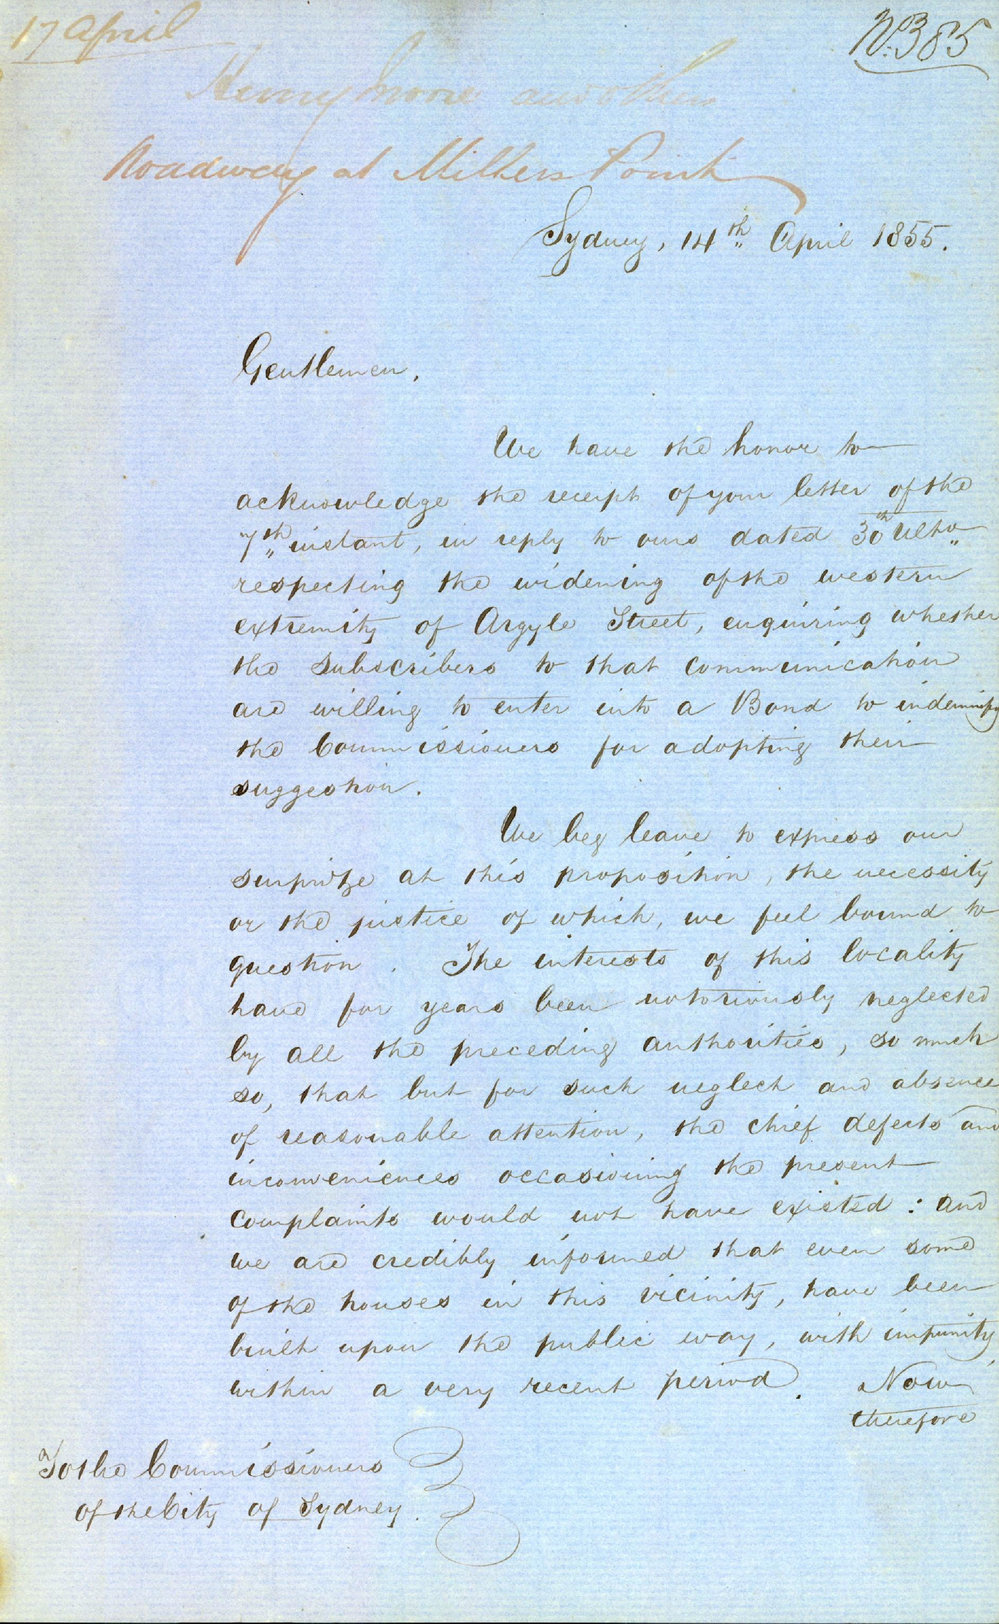 17 April
No. 385
Henry Moore and others
Roadway at Millers Point
Sydney, 14th April 1855.
Gentlemen,
We have the honor to
acknowledge the receipt of your letter of the
7th instant, in reply to ours dated 30th Ulto
respecting the widening of the western
extremity of Argyle Street, enquiring whether
the subscribers to that communication
are willing to enter into a Bond to indemnify
the Commissioners for adopting their
suggestion.
We beg leave to express our
surprize at this proposition, the necessity
or the justice of which, we feel bound to
question. The interests of this locality
have for years been notoriously neglected
by all the preceding authorities, so much
so, that but for such neglect and absence
of reasonable attention, the chief defects and
inconveniences occasioning the present
complaints would not have existed: and
we are credibly informed that even some
of the houses in this vicinity, have been
built upon the public way, with impunity
within a very recent period. Now
therefore
To the Commissioners
of the City of Sydney.